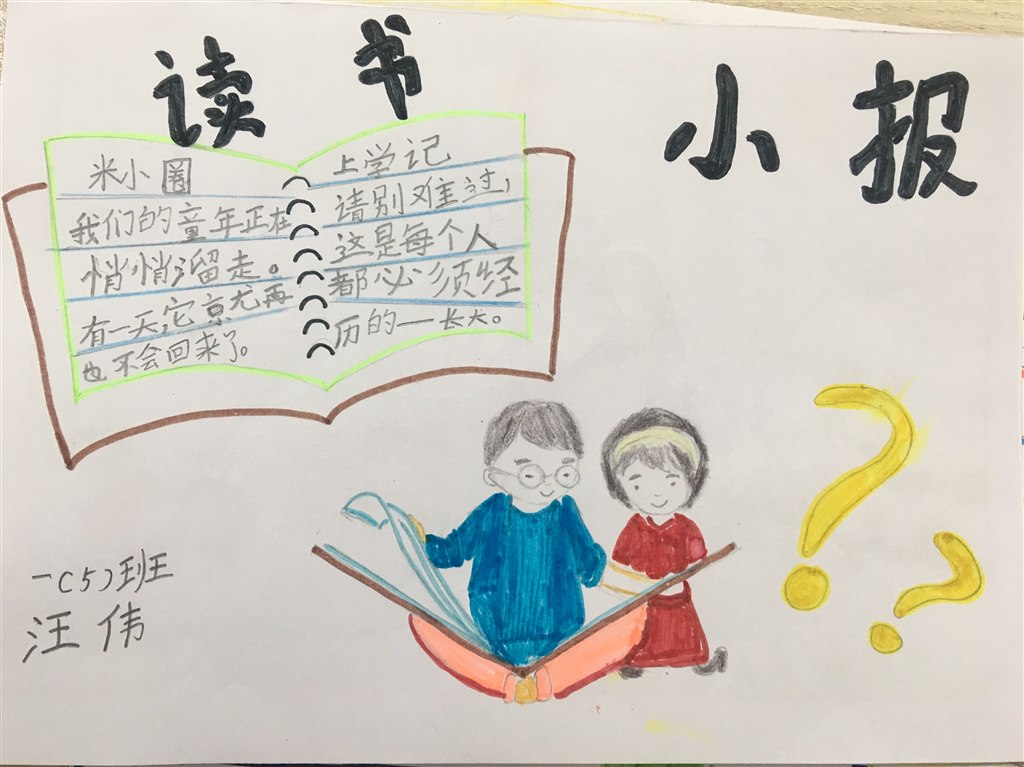 读书小报
米小圈
我们的童年正在
悄悄溜走。
有一天,它京尤再
也不会回来了。
上学记
请别难过,
这是每个人
都必须经
历的一长大。
一(5)班
汪伟